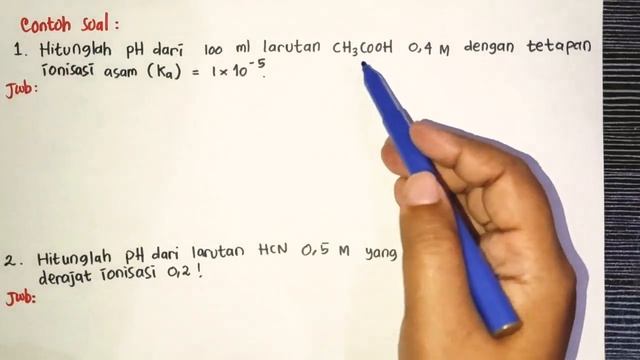 Contoh Soal :
1. Hitunglah pH dari 100 ml larutan CH₃COOH 0,4 M dengan tetapan
ionisasi asam (Ka) = 1 × 10⁻⁵.
Jwb :
2. Hitunglah pH dari larutan HCN 0,5 M yang
derajat ionisasi 0,2 !
Jwb :